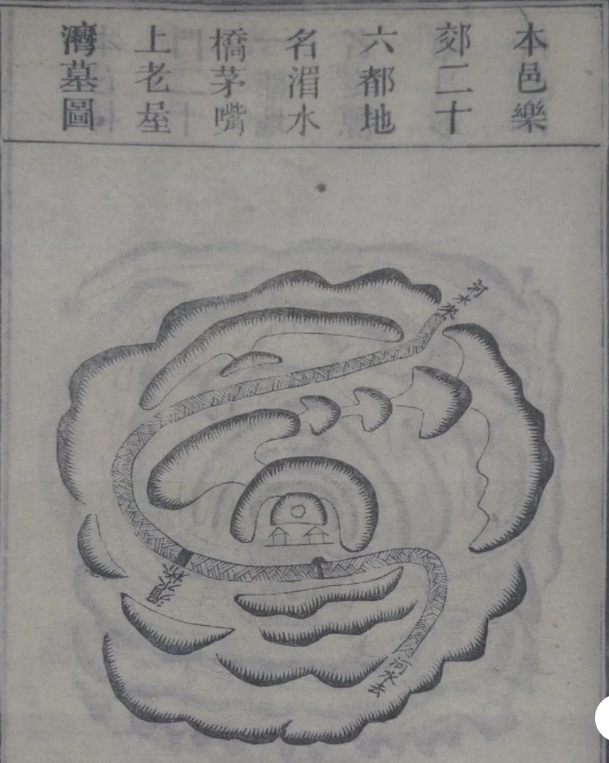 本邑樂
郊二十
六都地
名湄水
橋茅嘴
上老屋
濟墓圖
河水來
河水去